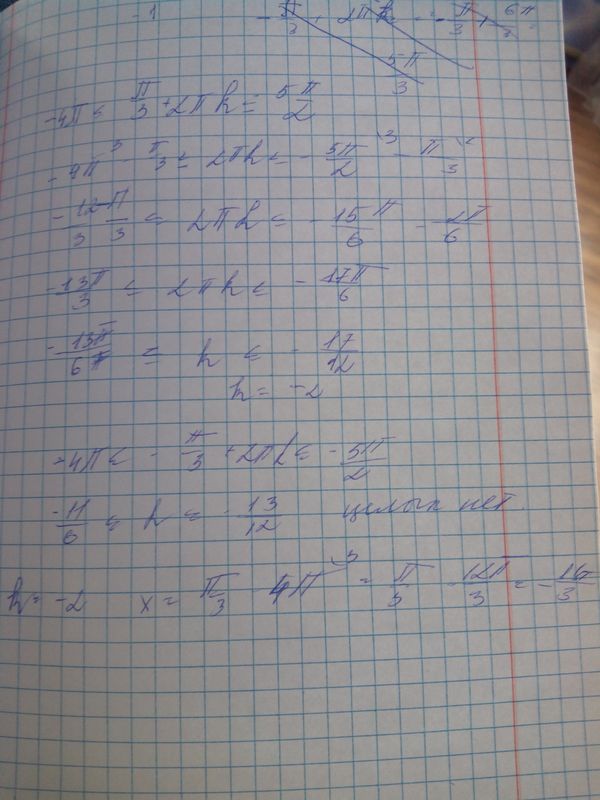 -1 -π/3 + 2πk = -π/3 + 6π/3 =
5π/3
-4π ≤ π/3 + 2πk ≤ 5π/2
-4π³ - π/3 ≤ 2πk ≤ -5π/2 ³ - π/3 ²
-12π/3 π/3 ≤ 2πk ≤ -15π/6 - 2π/6
-13π/3 ≤ 2πk ≤ -17π/6
-13π/6π ≤ k ≤ -17/12
k = -2
-4π ≤ -π/3 + 2πk ≤ -5π/2
-11/6 ≤ k ≤ -13/12 целых нет.
k = -2 x = π/3 4π ³ = π/3 - 12π/3 =